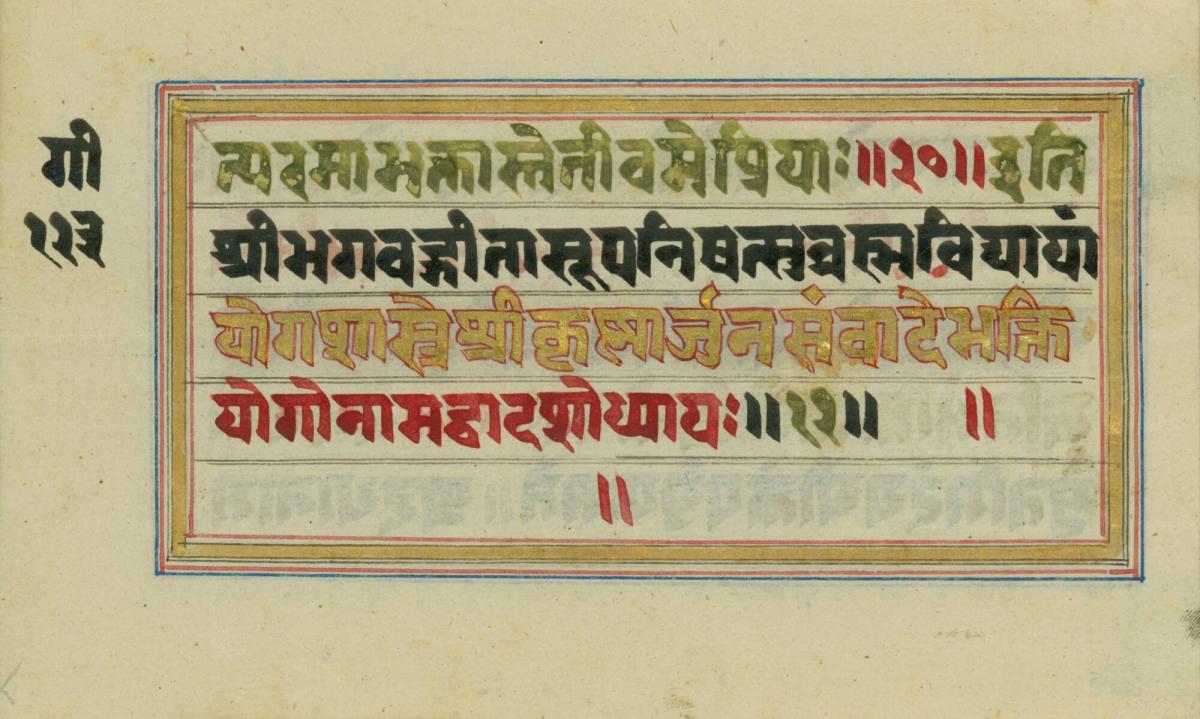 गी
११३
त्परमाभक्तास्तेतीवमेप्रियाः॥२०॥इति
श्रीभगवद्गीतासूपनिषत्सुब्रह्मविद्यायां
योगशास्त्रेश्रीकृष्णार्जुनसंवादेभक्ति
योगोनामद्वादशोध्यायः॥१२॥ ॥
॥